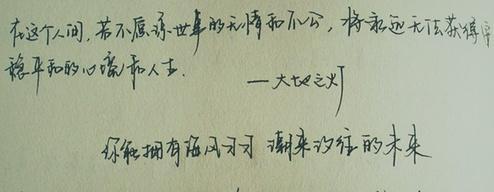 在这个人间,若不原谅世事的无情和不公,将永远无法获得安
稳平和的心境和人生.
—大地之灯
你能拥有海风习习 潮来汐往的未来